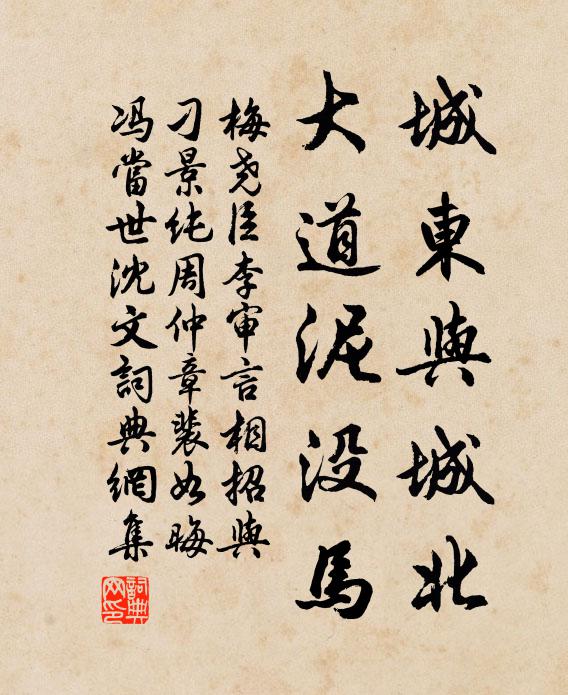 城東與城北
大道泥没馬
梅尧臣李审言相招與
刁景纯周仲章裴如晦
冯當世沈文詞典網集
詞典网印